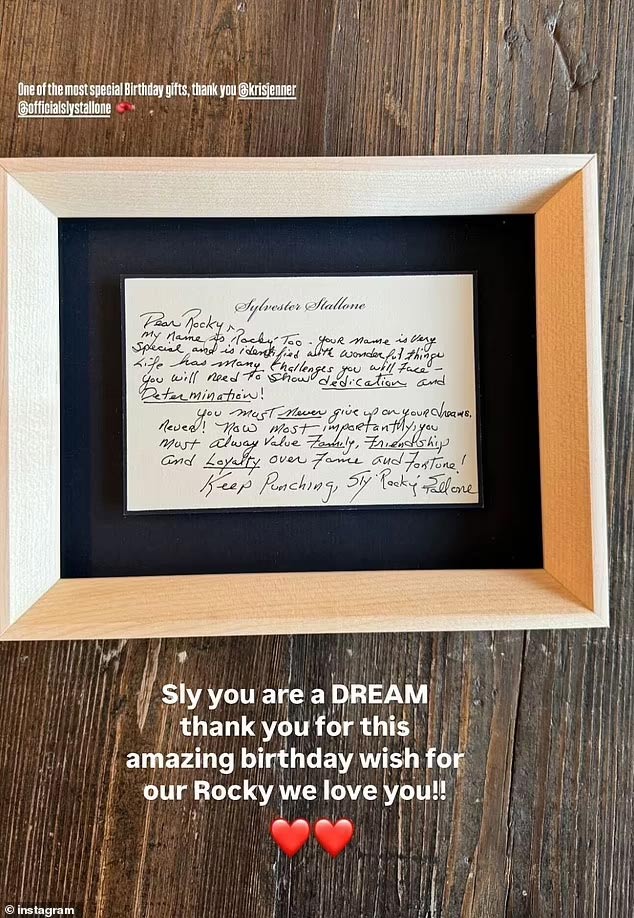 One of the most special Birthday gifts, thank you @krisjenner
@officialslystallone
Sylvester Stallone
Dear Rocky,
My name is Rocky Too - your name is very
special and is identified with wonderful things
Life has many challenges you will face -
you will need to show dedication and
Determination!
you must never give up on your dreams.
Never! Now most importantly, you
must alway value Family, Friendship
and Loyalty over Fame and Fortune!
Keep Punching, Sly "Rocky" Stallone
Sly you are a DREAM
thank you for this
amazing birthday wish for
our Rocky we love you!!
© instagram